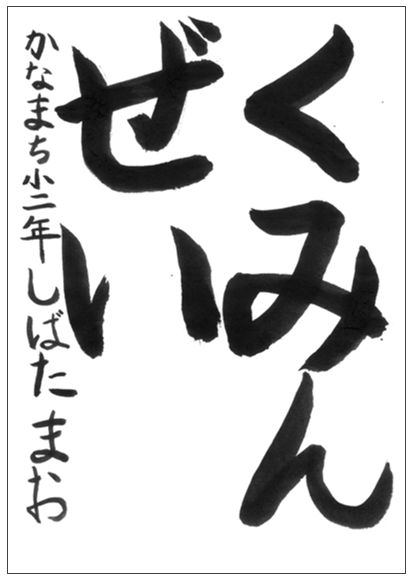 くみん
ぜい
かなまち小二年しばたまお